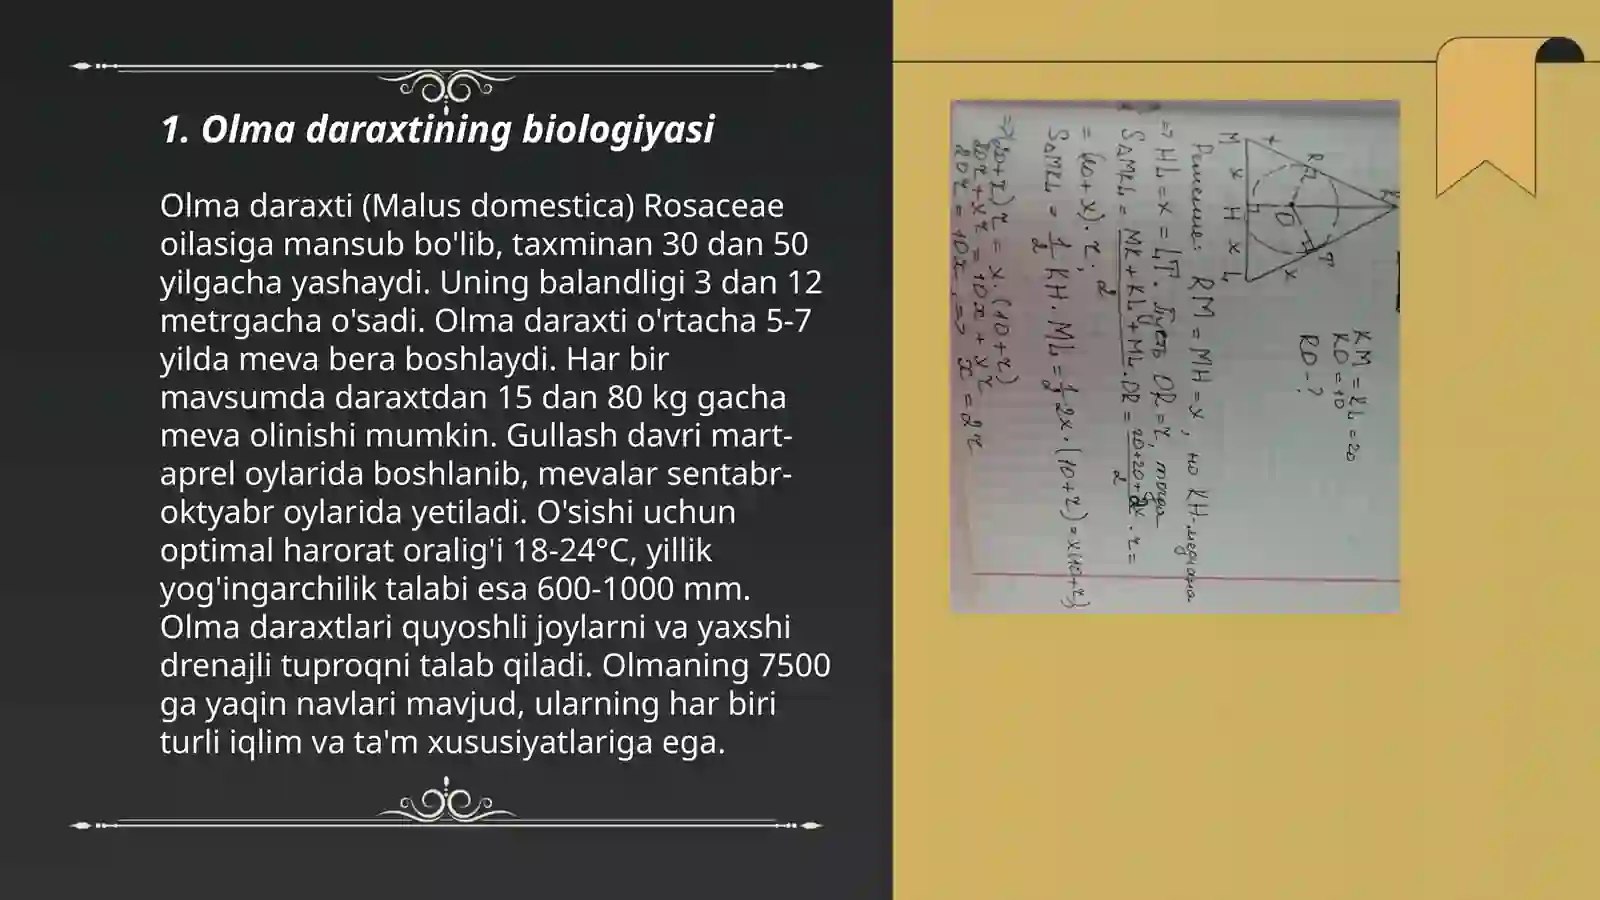 1. Olma daraxtining biologiyasi
Olma daraxti (Malus domestica) Rosaceae
oilasiga mansub bo'lib, taxminan 30 dan 50
yilgacha yashaydi. Uning balandligi 3 dan 12
metrgacha o'sadi. Olma daraxti o'rtacha 5-7
yilda meva bera boshlaydi. Har bir
mavsumda daraxtdan 15 dan 80 kg gacha
meva olinishi mumkin. Gullash davri mart-
aprel oylarida boshlanib, mevalar sentabr-
oktyabr oylarida yetiladi. O'sishi uchun
optimal harorat oralig'i 18-24°C, yillik
yog'ingarchilik talabi esa 600-1000 mm.
Olma daraxtlari quyoshli joylarni va yaxshi
drenajli tuproqni talab qiladi. Olmaning 7500
ga yaqin navlari mavjud, ularning har biri
turli iqlim va ta'm xususiyatlariga ega.
KM = KL = 20
KO = 10
RO - ?
K
R
T
O
x
x
M x H x L
Решение: RM = MH = x, но KH-медиана
=> HL = x = LT. Пусть OR = r, тогда
S∆MKL = (MK + KL + ML)/2 · OR = (20+20+2x)/2 · r =
= (20+x) · r;
S∆MKL = 1/2 KH · ML = 1/2 2x · (10+r) = x(10+r)
=> (20+x) r = x · (10+r)
20r + xr = 10x + xr
20r = 10x => x = 2r